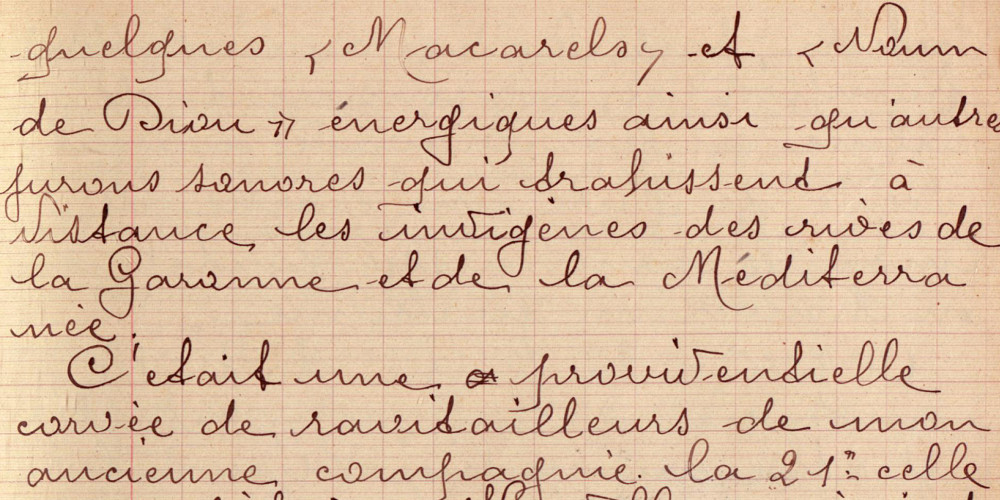 quelques « Macarels » et « Noum
de Diou » énergiques ainsi qu'autre
jurons sonores qui trahissent à
distance, les indigènes des rives de
la Garonne et de la Méditerra
née.
C'était une providentielle
corvée de ravitailleurs de mon
ancienne compagnie. la 21e celle